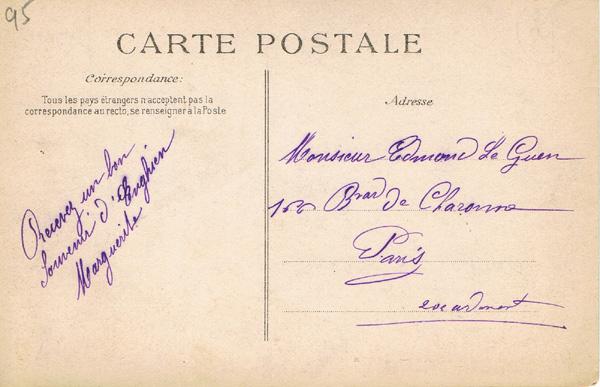 95
CARTE POSTALE
Correspondance:
Tous les pays étrangers n'acceptent pas la
correspondance au recto, se renseigner à la Poste
Recevez un bon
Souvenir d'Enghien
Marguerite
Adresse
Monsieur Edmond Le Guen
Bvard de Charonne
Paris